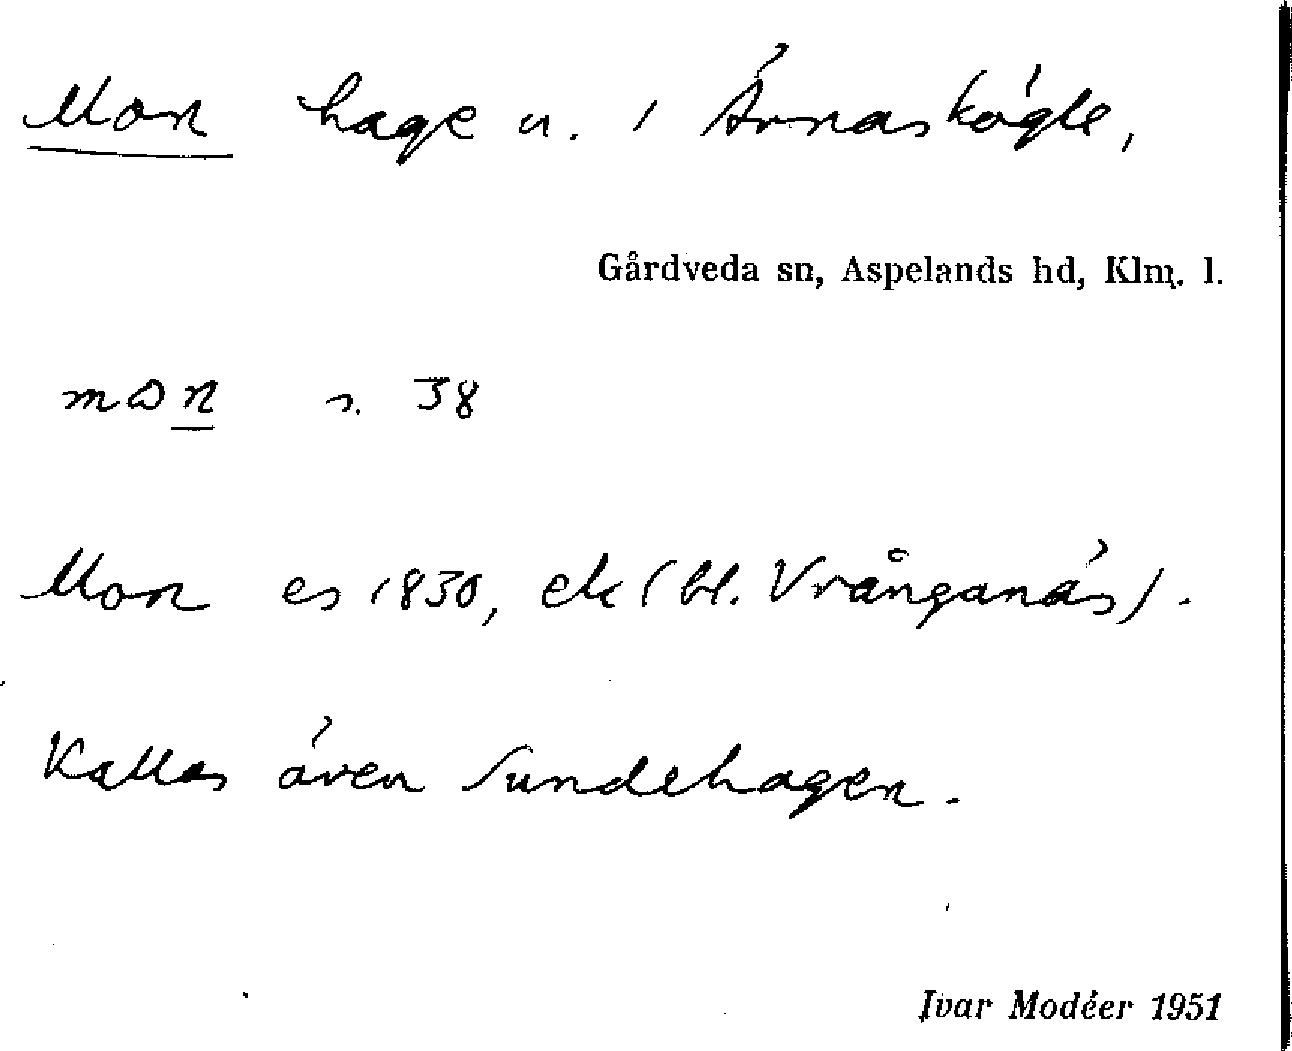 Mon hage u. / Ärnaskögle,
Gårdveda sn, Aspelands hd, Klm. l.
mon s. 38
Mon es 1830, ek (bl. Vrånganäs).
Kallas även Sundehagen.
Ivar Modéer 1951